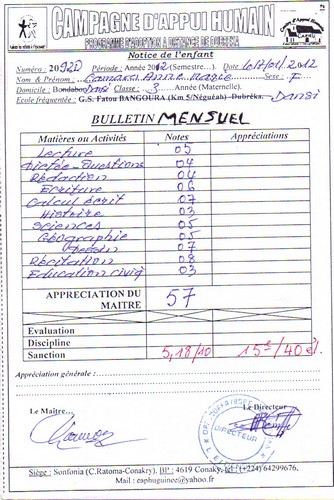 CAMPAGNE D'APPUI HUMAIN
PROGRAMME D'ADOPTION A DISTANCE DE DUBREKA
Notice de l'enfant
Numéro : 20920 Année 2012 (Semestre...). Date
Nom & Prénom : Camara Anne Marie Sexe : F
Domicile : Bondabon Dansi Classe : 3 Année (Maternelle).
Ecole fréquentée : G.S. Fatou BANGOURA (Km 5/Néguéah) Dubréka. Dansi
BULLETIN MENSUEL
Matières ou Activités Notes Appréciations
Lecture 05
Dictée-Questions 04
Rédaction 04
Ecriture 06
Calcul écrit 07
Histoire 03
Sciences 05
Géographie 05
Dessin 07
Récitation 08
Education civiq 03
APPRECIATION DU MAITRE 57
Evaluation
Discipline
Sanction 5,18/10 15e/40 él
Appréciation générale :
Le Maître... Le Directeur
DIRECTEUR
Siège : Sonfonia (C.Ratoma-Conakry), BP : 4619 Conaky, tel : (+224)64299676,
Mail : caphuguinee@yahoo.fr